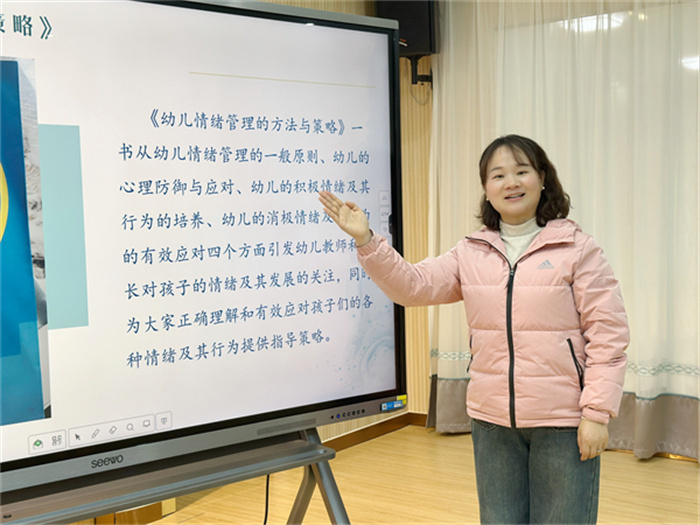 策略》
《幼儿情绪管理的方法与策略》一
书从幼儿情绪管理的一般原则、幼儿的
心理防御与应对、幼儿的积极情绪及其
行为的培养、幼儿的消极情绪及
的有效应对四个方面引发幼儿教师和
长对孩子的情绪及其发展的关注，同
为大家正确理解和有效应对孩子们的各
种情绪及其行为提供指导策略。
seewo
adidas